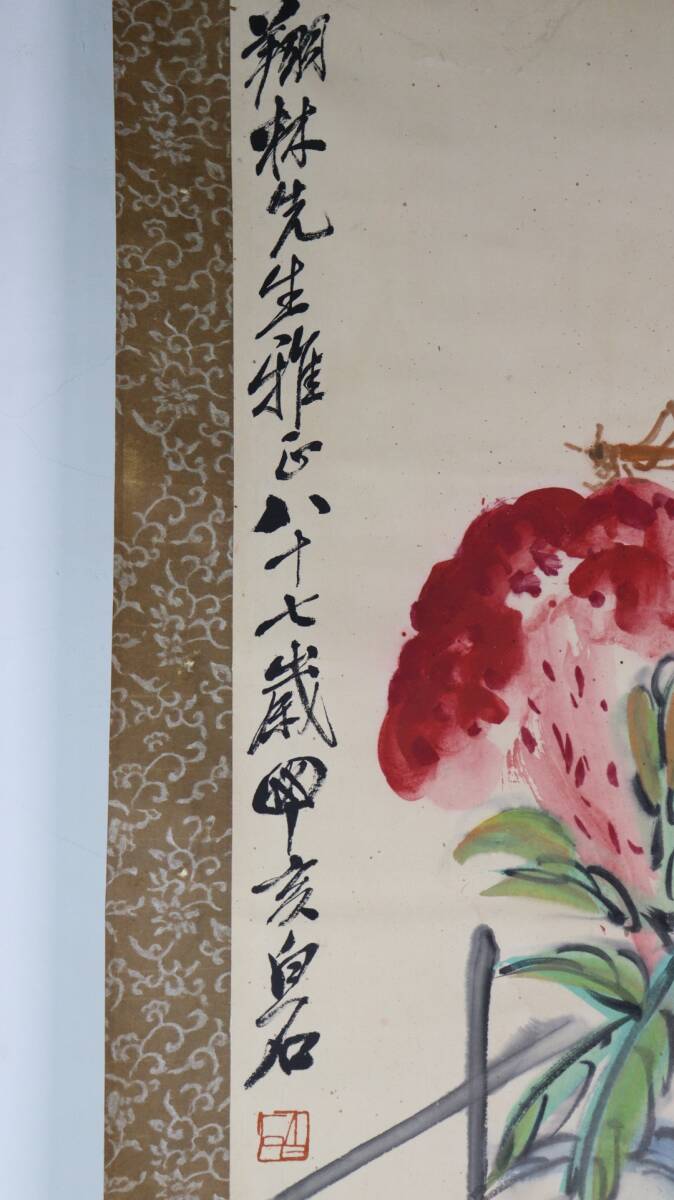 翔林先生雅正八十七歲甲亥白石